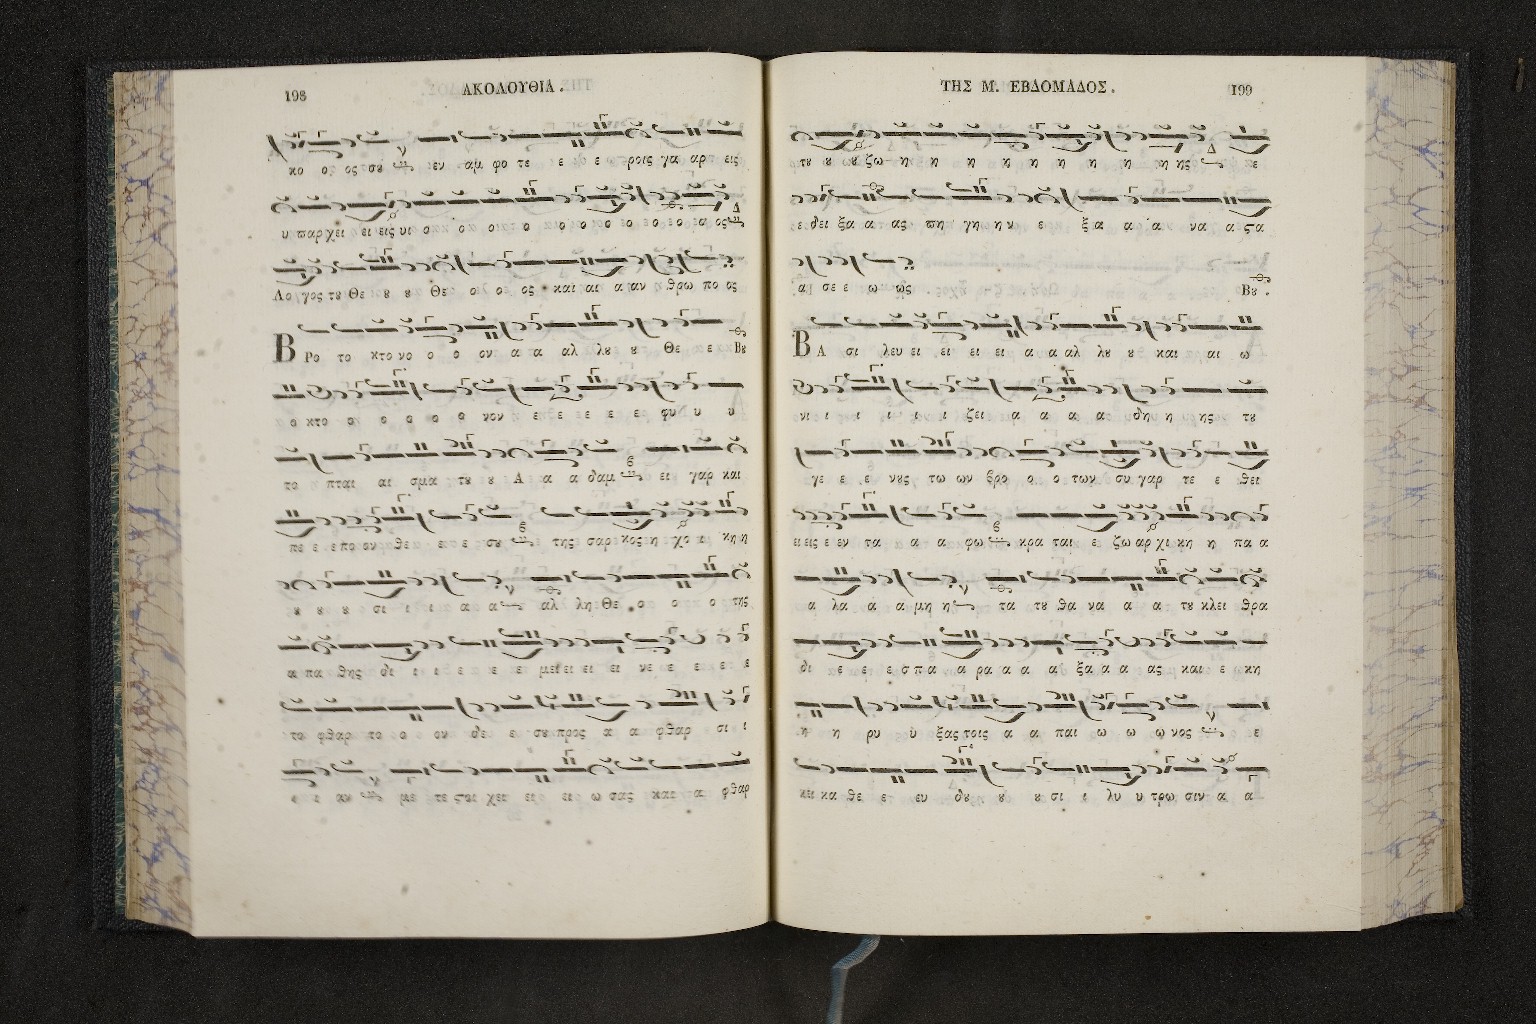 198 ΑΚΟΛΟΥΘΙΑ .
κο ο ος σου εν αμ φο τε ε ε ω ροις γα αρ εις
υ παρχει ει εις υι ο ο ο ο ο ο ο ο ο ο ο ο ο ος
Λο γος του Θε ου ου Θε ο ο ος και αι α αν θρω πο ος
ΒΡο το κτο νο ο ο ον α α αλ λου ου Θε ε Βου
ο κτο ο ο ο ο ο νον ε ε ε ε ε φυ υ υ
το πται αι σμα του ου Α α α δαμ ει γαρ και
πε ε ε πο ον θε ε ε ε σου της σαρ κος η χο ι κη η
ου ου ου σι ι ι α α αλ λη Θε ο ο ο της
α πα θης δι ι ι ε ε ε ε με ει ει ει ει νε ε ε ε ε
το φθαρ το ο ο ον δε ε σου προς α α φθαρ σι ι
ι ι αν με τε στοι χει ει ει ω σας και α φθαρ
ΤΗΣ Μ. ΕΒΔΟΜΑΔΟΣ . 199
του ου ου ζω η η η η η η η η η ης ε
ε δει ξα α ας πη γη η ν ε ξ α α α να α στα
α σε ε ω ως Βου .
ΒΑ σι λευ ει ει ει ει α α αλ λου ου και αι ω
νι ι ι ι ι ι ζει α α α α δη η ης του
γε ε ε νους τω ων βρο ο ο των συ γαρ τε ε θει
ει εις ε εν τα α α φω κρα ται ε ζω αρ χι κη η πα α
α λα α α μη η τα του θα να α α του κλει θρα
δι ε ε ε σπα α ρα α α α ξα α α ας και ε κη
η η ρυ υ ξας τοις α α παι ω ω ω νος ε
κει κα θε ε ευ δου ου ου σι ι λυ υ τρω σιν α α